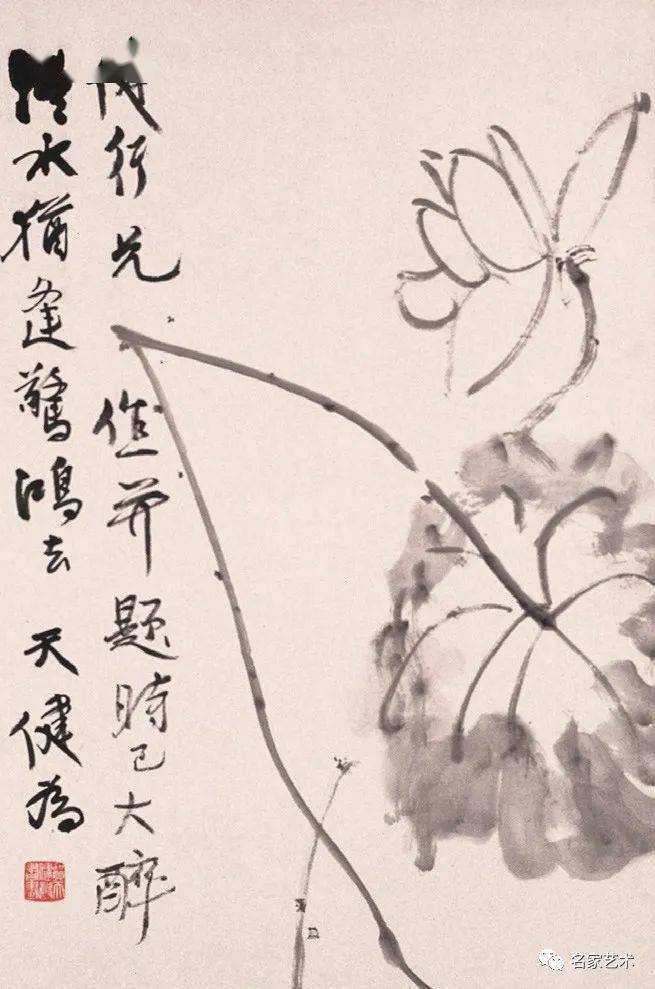 水猶逢驚鴻去 天健為
行兄 作并題時已大醉
名家艺术